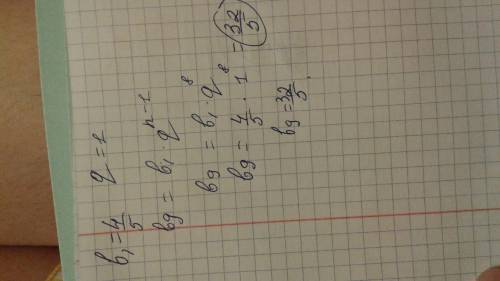 b₁ = 4/5 q = 1
b9 = b₁ · q^n-1
b9 = b₁ · q^8
b9 = 4/5 · 1^8 = 32/5
b9 = 32/5.